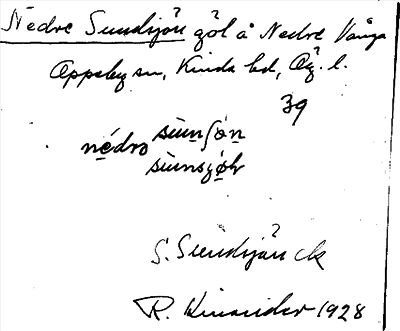 Nedre Sundsjön göl å Nedre Vånga
Oppeby sn, Kinda hd, Ög. l.
39
nédro sùnʃo̰n
sùnsjøn
S. Sundsjön ck
R. Kinander 1928